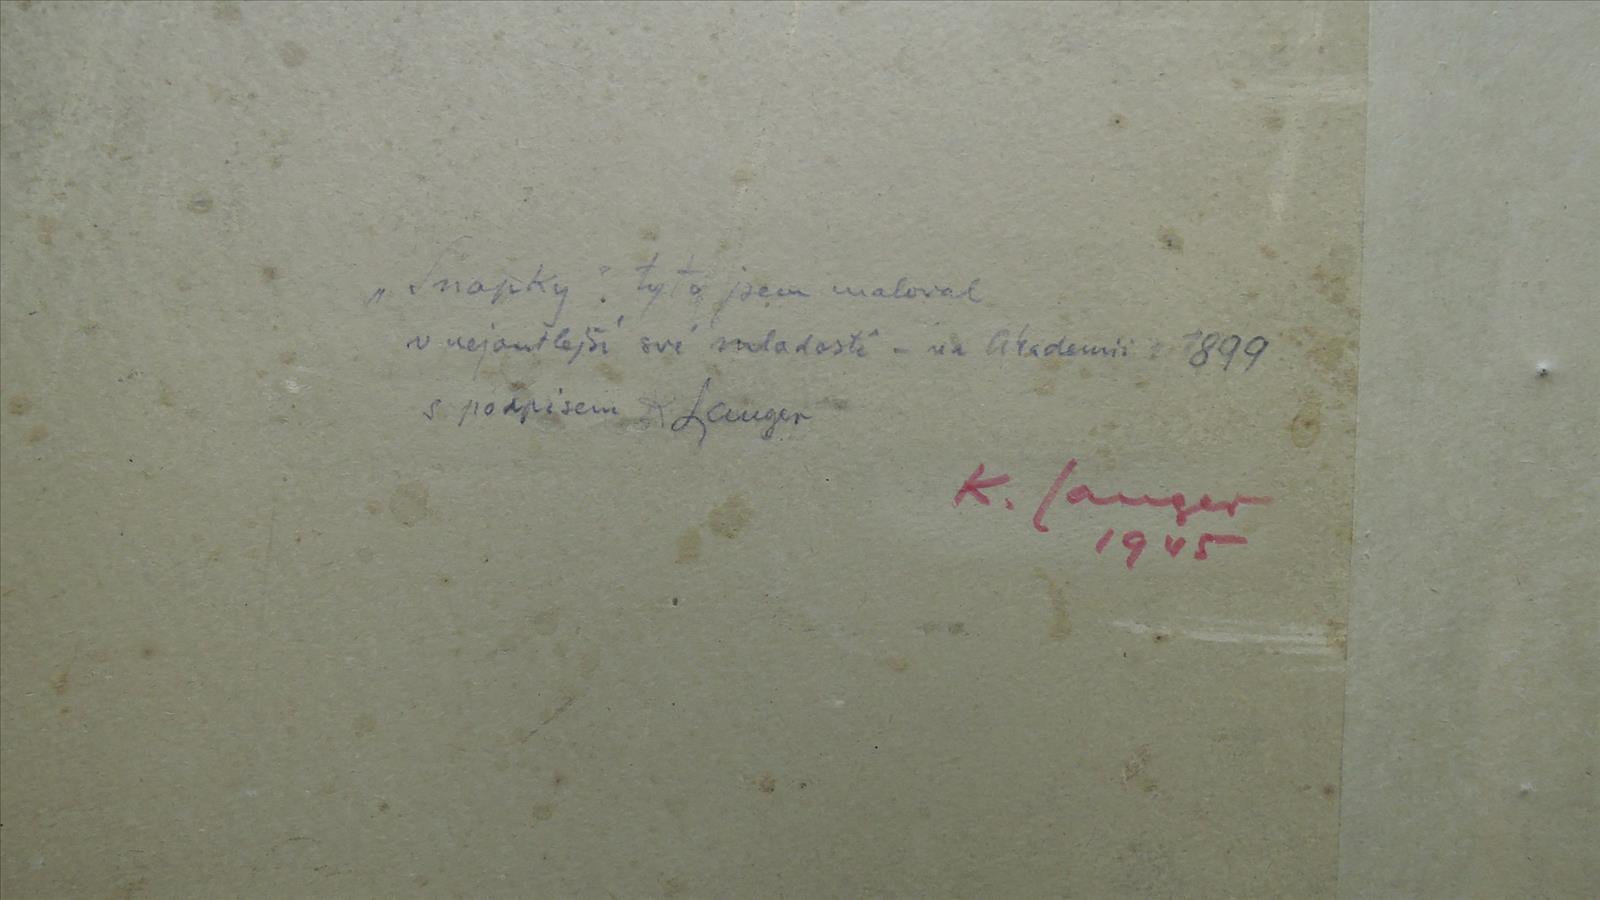 „Snopky“ tyto jsem maloval
v nejoutlejší své mladosti – na Akademii 1899
s podpisem K Langer
K. Langer
1945